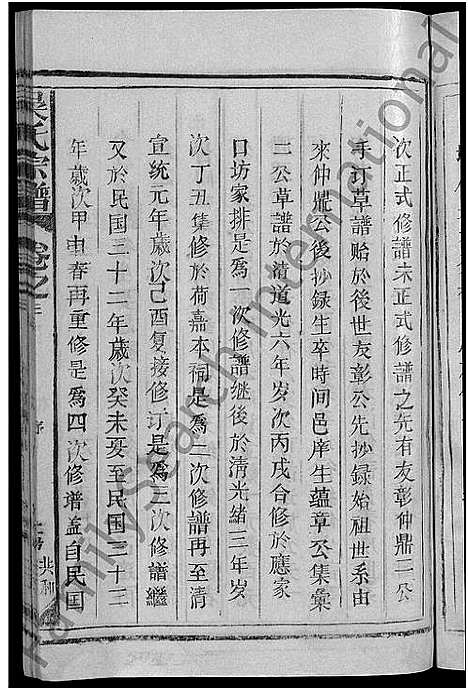 次正式修譜未正式修譜之先有友彰仲鼎二公
手订草譜貽於後世友彰公先抄録始祖世系由
來仲鼎公後抄録生卒時间邑庠生蕴章公集彙
二公草譜於清道光六年岁次丙戌合修於應家
口坊家排是爲一次修譜继後於清光緒三年岁
次丁丑集修於荷嘉本祠是爲二次修譜再至清
宣統元年歲次己酉复接修订是爲三次修譜繼
又於民国三十二年歲次癸未至民国三十三
年歲次甲申春再重修是爲四次修谱盖自民国
吴氏宗譜 卷之
FamilySearch International